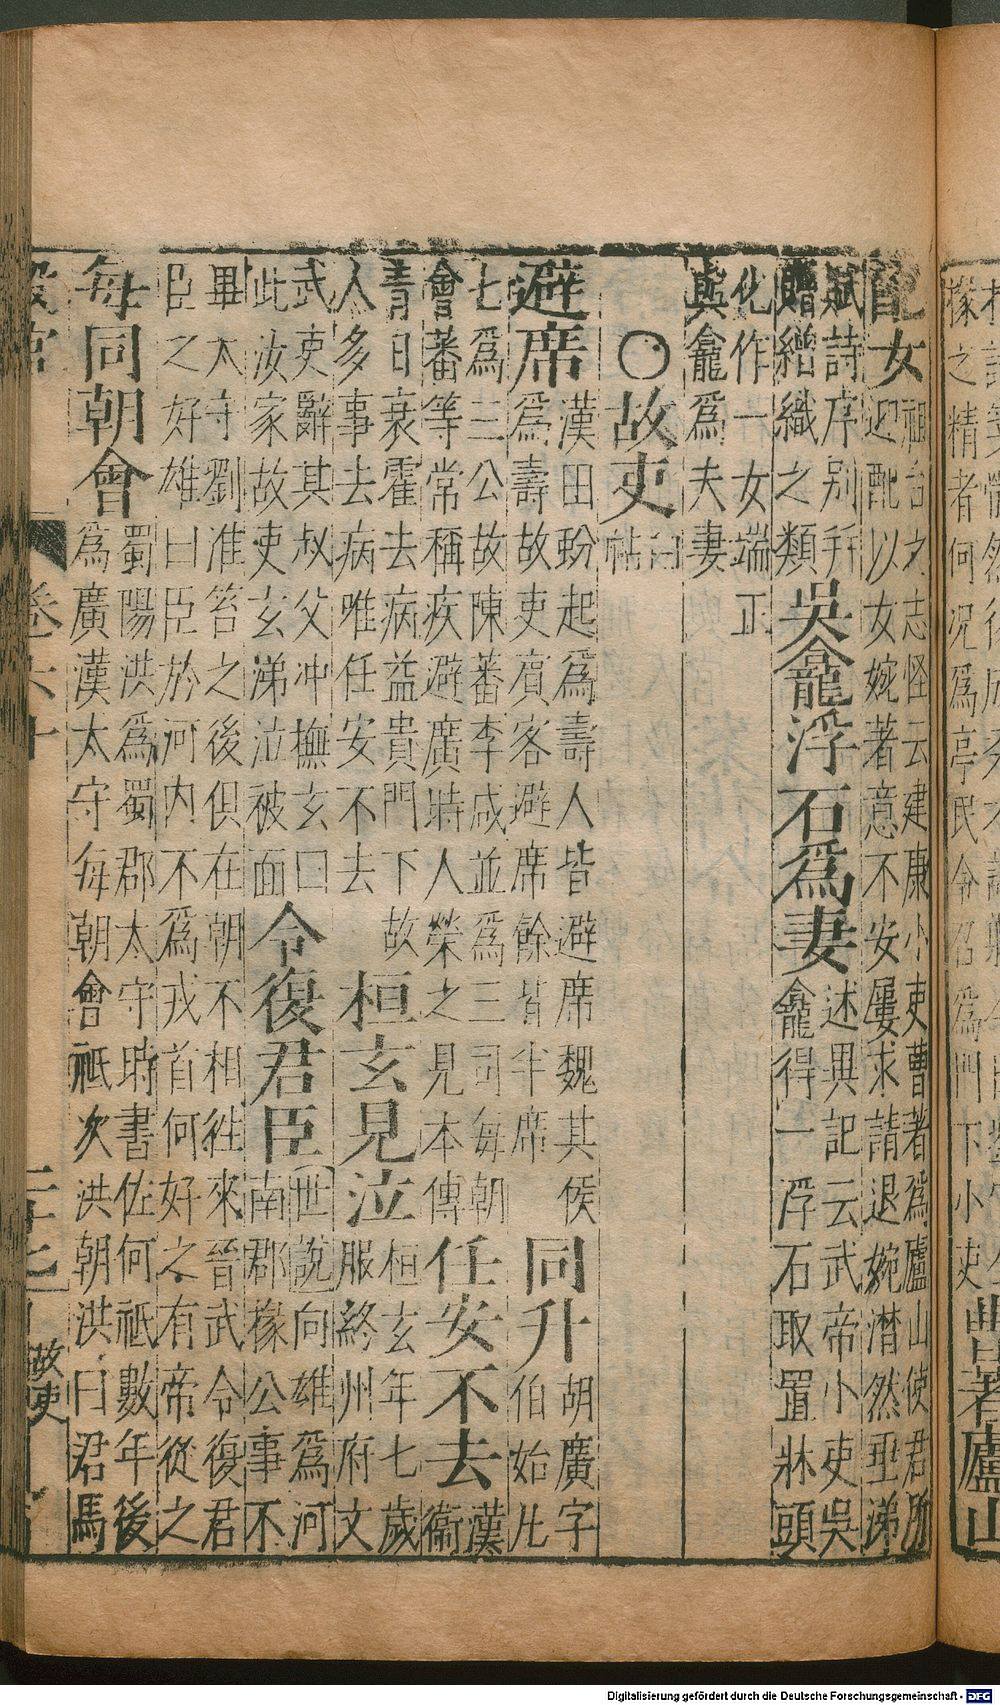 掾之精者何況爲亭民令召爲門下小吏
曹著廬山
配女
祖台之志怪云建康小吏曹著爲廬山使君所
迎配以女婉著意不安屢求請退婉潸然垂涕
賦詩序别并
贈繒織之類
吳龕浮石爲妻
述異記云武帝小吏吳
龕得一浮石取置牀頭
化作一女端正
與龕爲夫妻
○故吏
避席
漢田蚡起爲壽人皆避席魏其侯
爲壽故吏賓客避席餘皆半席
同升
胡廣字
伯始凡
七爲三公故陳蕃李咸並爲三司每朝
會蕃等常稱疾避廣時人榮之見本傳
任安不去
漢
衞
青日衰霍去病益貴門下故
人多事去病唯任安不去
桓玄見泣
桓玄年七歲
服終州府文
武吏辭其叔父冲撫玄曰
此汝家故吏玄涕泣被面
令復君臣
世說向雄爲河
南郡掾公事不
畢大守劉准笞之後俱在朝不相徃來晉武令復君
臣之好雄曰臣於河内不爲戎首何好之有帝從之
每同朝會
蜀陽洪爲蜀郡太守時書佐何祗數年後
爲廣漢太守每朝會祗次洪朝洪曰君馬
故吏
Digitalisierung gefördert durch die Deutsche Forschungsgemeinschaft - DFG